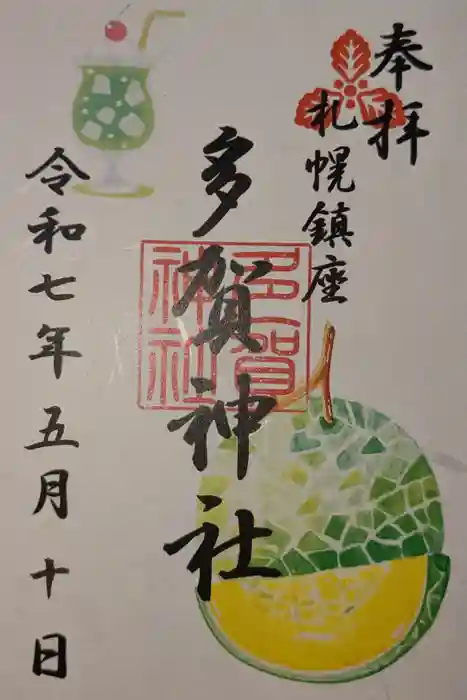 奉拝
札幌鎮座
多賀神社
多賀神社
令和七年五月十日